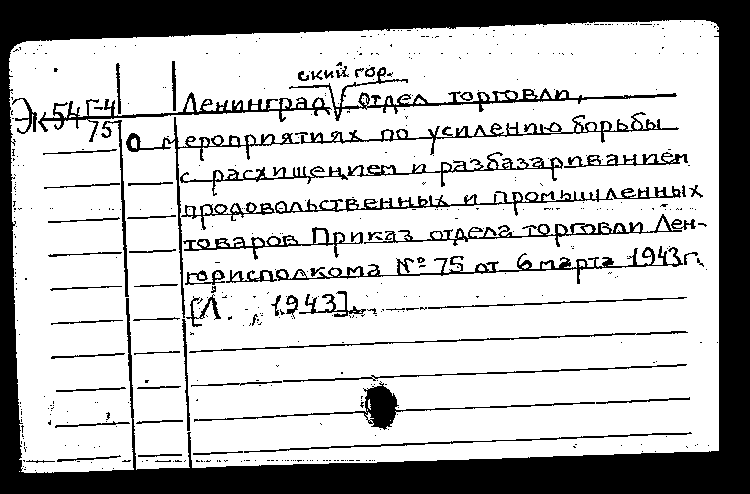 ский гор.
Эк54 Г-4 Ленинград√отдел торговли,
75
О мероприятиях по усилению борьбы
с расхищением и разбазариванием
продовольственных и промышленных
товаров. Приказ отдела торговли Лен-
горисполкома № 75 от 6 марта 1943г.
[Л., 1943].